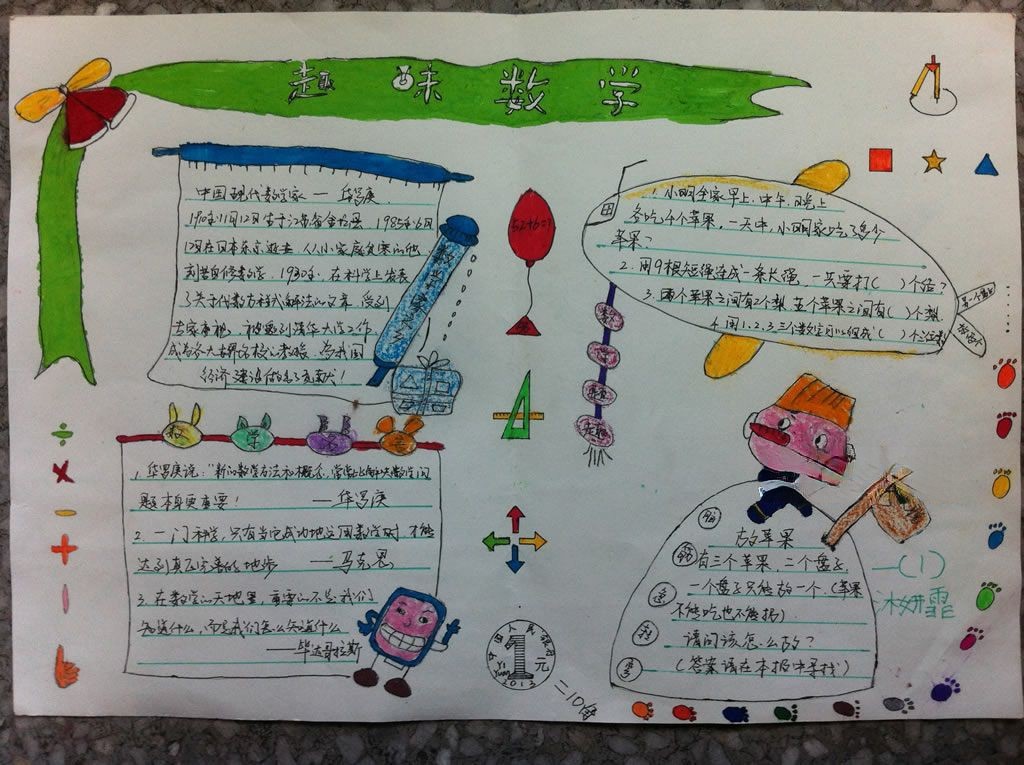 趣味数学
中国现代数学家 — 华罗庚
1910年11月12日生于江苏省金坛县，1985年6月
12日在日本东京逝世，从小家庭贫寒的他
刻苦自修数学，1930年，在科学上发表
了关于代数方程式解法的文章，受到
专家重视，被邀到清华大学工作，
成为各大世界名校的教授，为我国
经济建设做出了贡献！
数学
52+6=?
1. 小明全家早上、中午、晚上
各吃4个苹果，一天中，小明家吃了多少个
苹果？
2. 用9根短绳连成一条长绳，一共要打( )个结？
3. 每个苹果之间有2个梨，五个苹果之间有( )个梨。
4. 用1、2、3三个数字可以组成( )个三位数
数学
1. 华罗庚说："新的数学方法和概念，常常比解决数学问
题本身更重要！ — 华罗庚
2. 一门科学，只有当它成功地运用数学时，才能
达到真正完善的地步 — 马克思
3. 在数学的天地里，重要的不是我们
知道什么，而是我们怎么知道什么
——毕达哥拉斯
中国人民银行
1元
YI YUAN
2012
=10角
脑筋急转弯
放苹果
有三个苹果，二个盘子，
一个盘子只能放一个。(苹果
不能吃也不能扔)
请问该怎么放？
(答案请在本报中寻找)
一(1)
沐妍霏